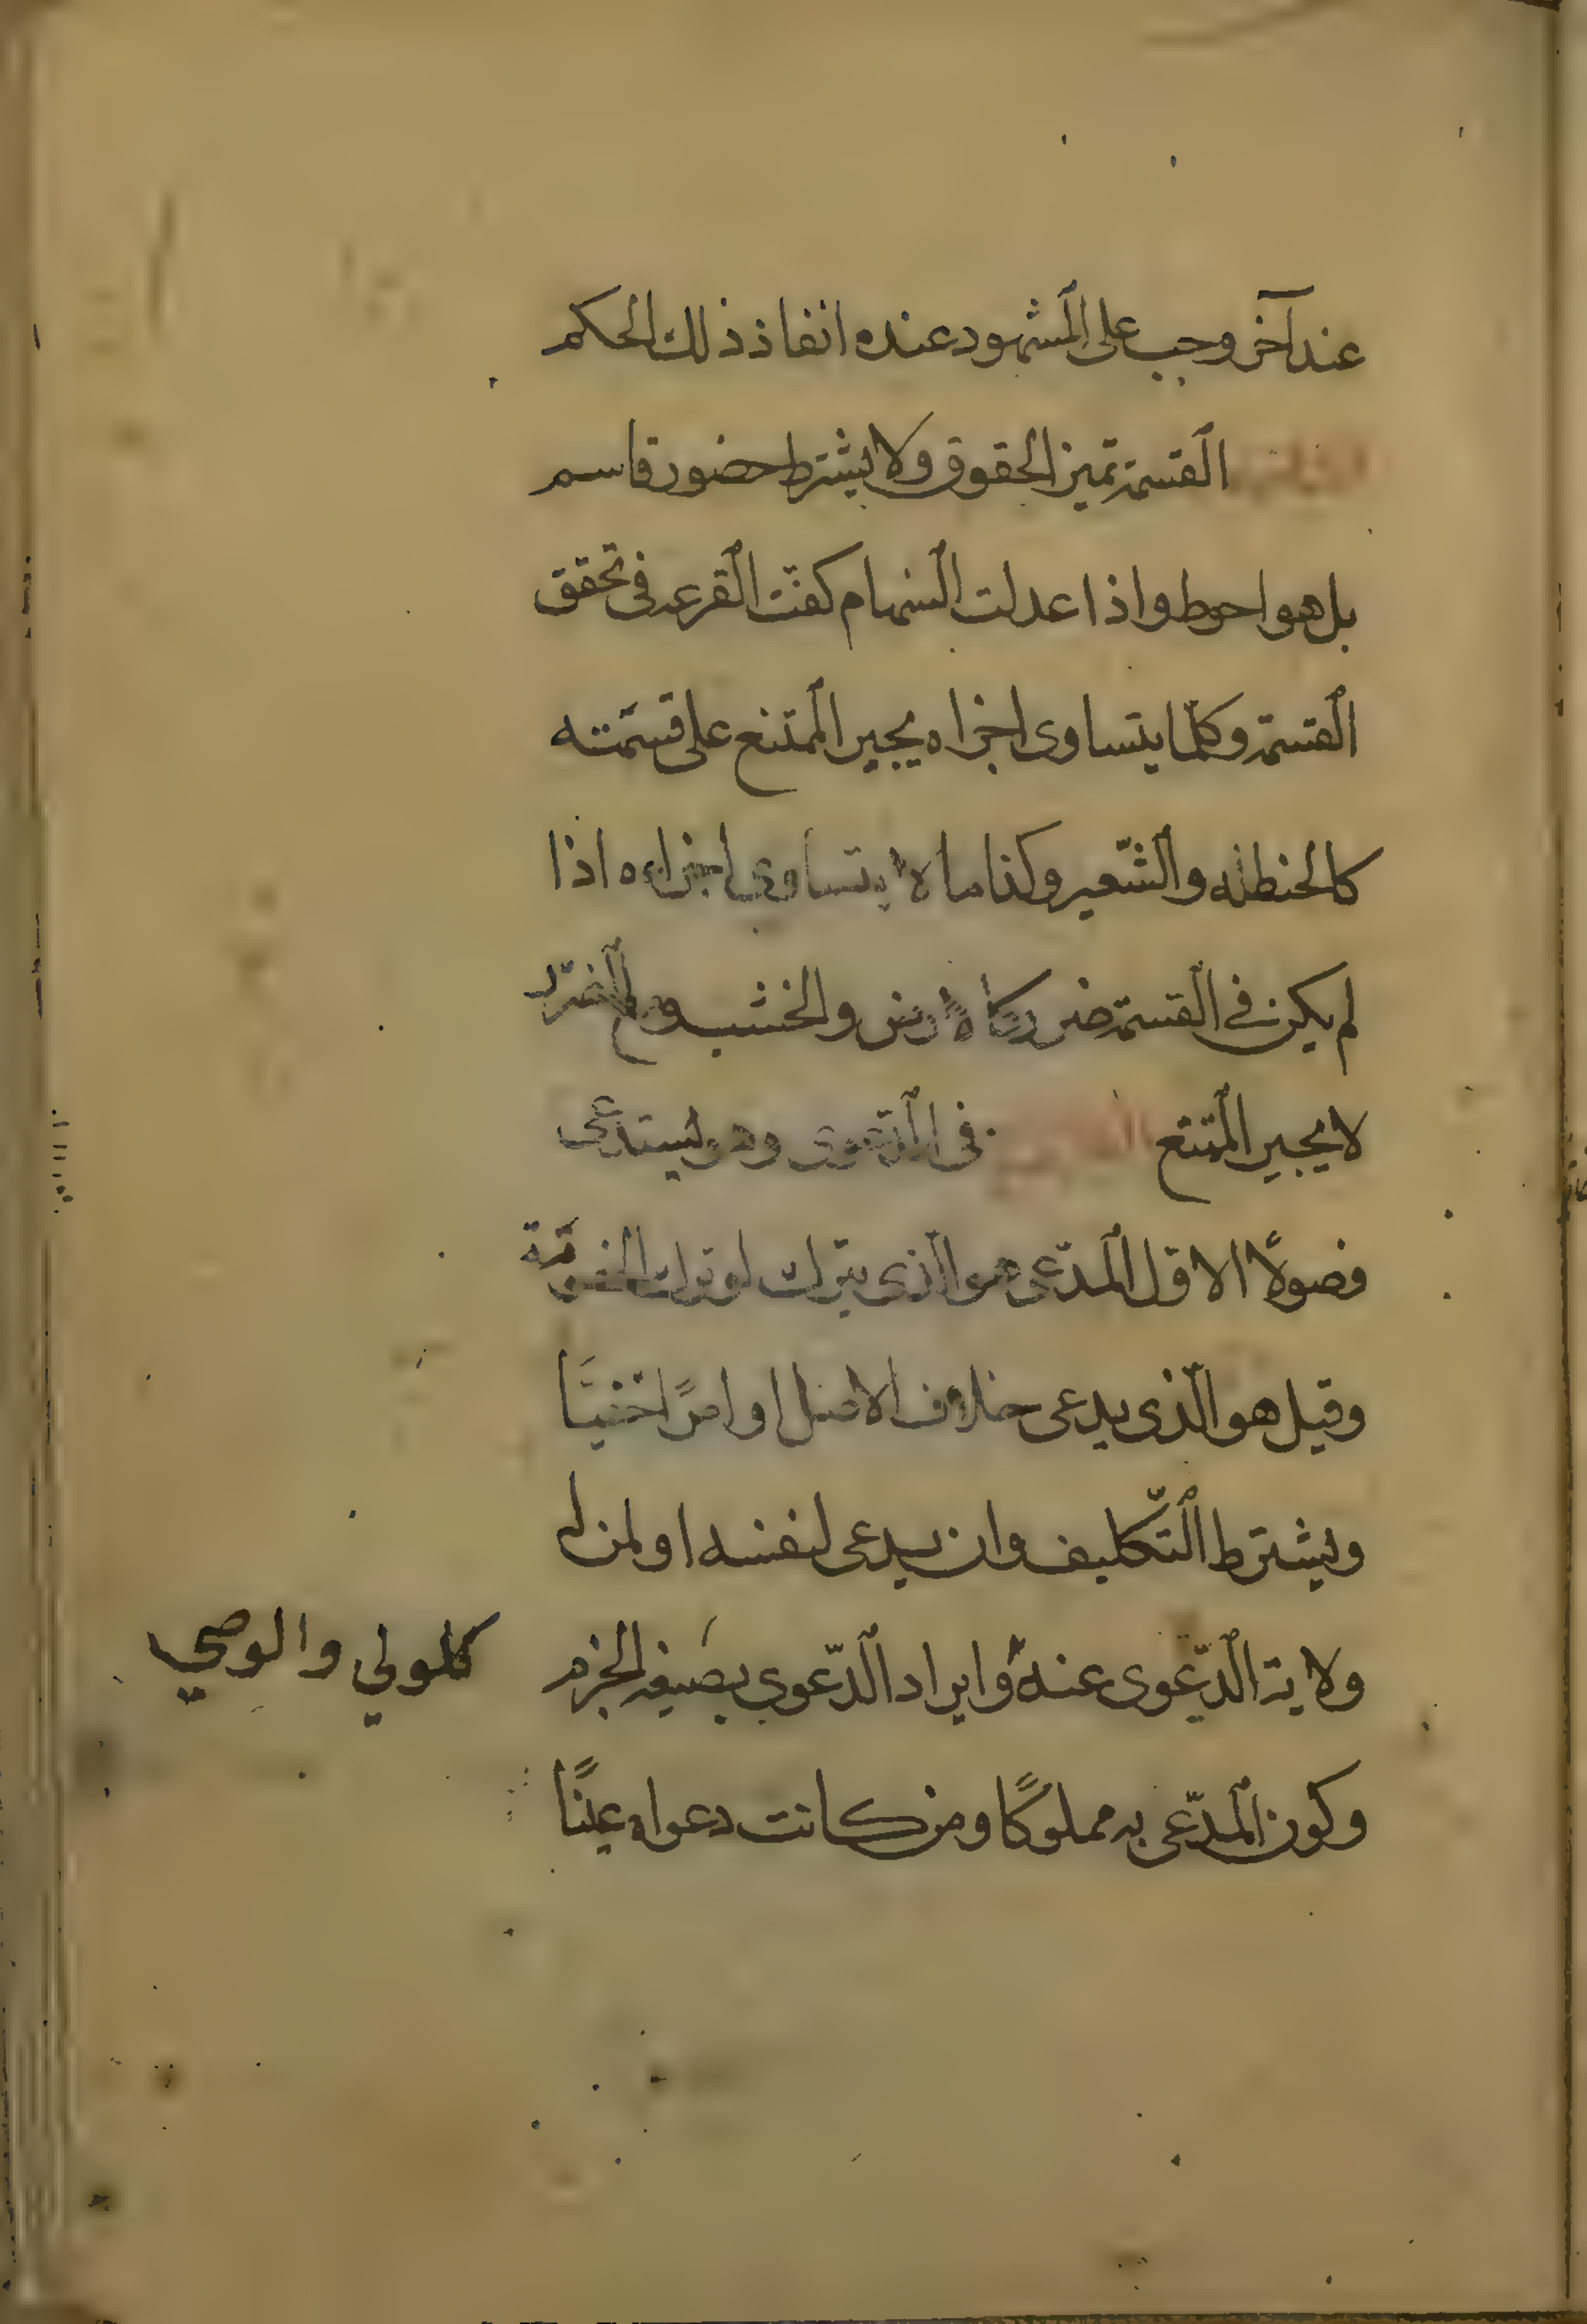 عند آخر وجب على المشهود عنده انفاذ ذلك الحكم
القسمة تميز الحقوق ولا يشترط حضور قاسم
بل هو احوط واذا عدلت السّهام كفت القرعة فى تحقق
القسمة وكلّما يتساوى اجزاه يجبر الممتنع على قسمته
كالحنطة والشّعير وكذا ما لا يتساوى اجزاءه اذا
لم يكن فى القسمة ضرر كالارض والخشب ومع الضّرر
لا يجبر الممتنع فى الدّعوى وهو يستدعى
فصولًا الاول المدّعى هو الّذى يترك لو ترك الخصومة
وقيل هو الّذى يدعى خلاف الاصل او امرًا خفيّا
ويشترط التّكليف وان يدعى لنفسه او لمن له
ولاية الدّعوى عنه وايراد الدّعوى بصيغة الجزم
كالولي والوصي
وكون المدّعى به مملوكًا ومن كانت دعواه عينًا